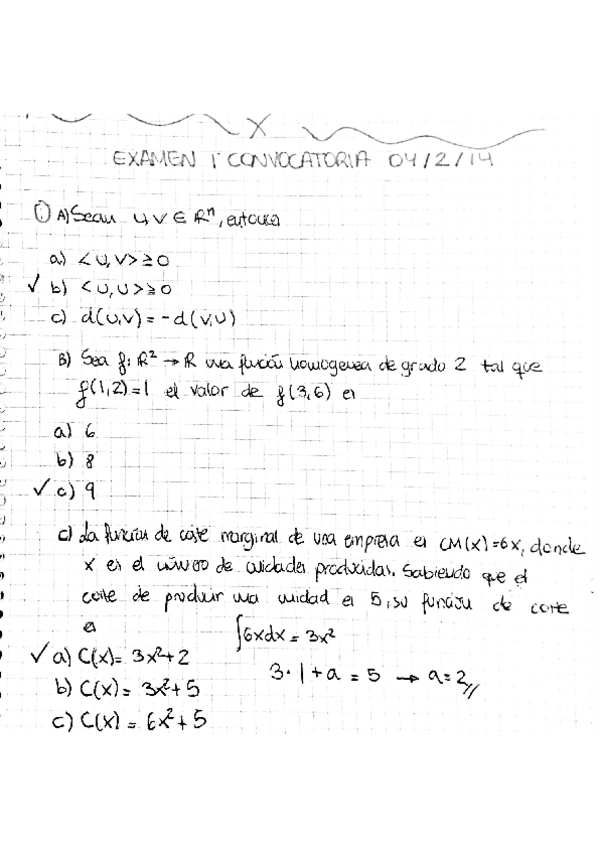 EXAMEN 1ª CONVOCATORIA 04/2/14
① A) Sean u,v ∈ Rⁿ, entonces
a) <u,v> ≥ 0
✓ b) <u,u> ≥ 0
c) d(u,v) = -d(v,u)
B) Sea f: R² → R una función homogenea de grado 2 tal que
f(1,2)=1 el valor de f(3,6) es
a) 6
b) 8
✓ c) 9
c) La función de coste marginal de una empresa es CM(x)=6x, donde
x es el número de unidades producidas. Sabiendo que el
coste de producir una unidad es 5, su función de coste
es ∫6xdx = 3x²
✓ a) C(x)= 3x²+2 3·1+a = 5 → a=2//
b) C(x) = 3x²+5
c) C(x) = 6x²+5